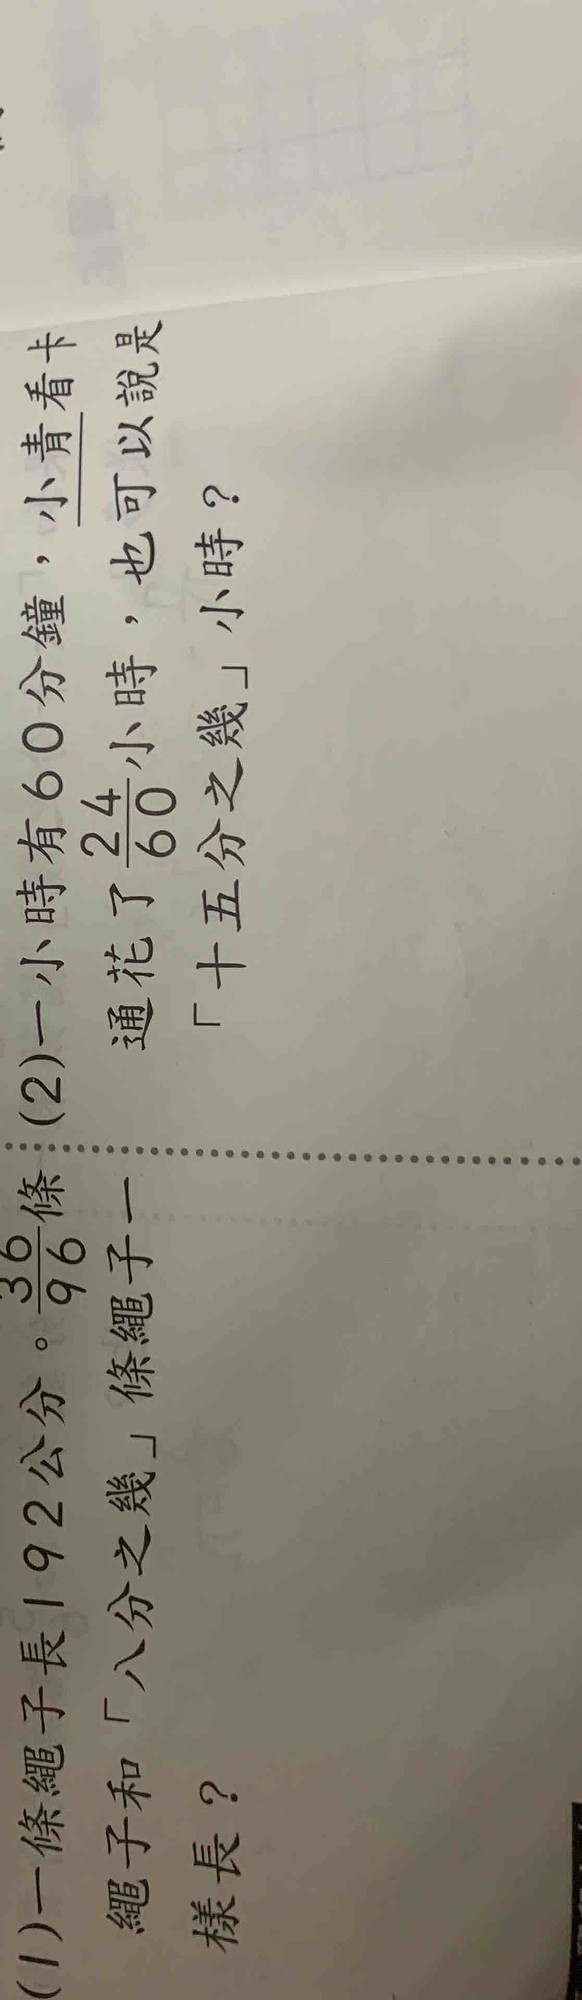 (1)一條繩子長192公分。36/96條
繩子和「八分之幾」條繩子一
樣長？
(2)一小時有60分鐘，小青看卡
通花了24/60小時，也可以說是
「十五分之幾」小時？